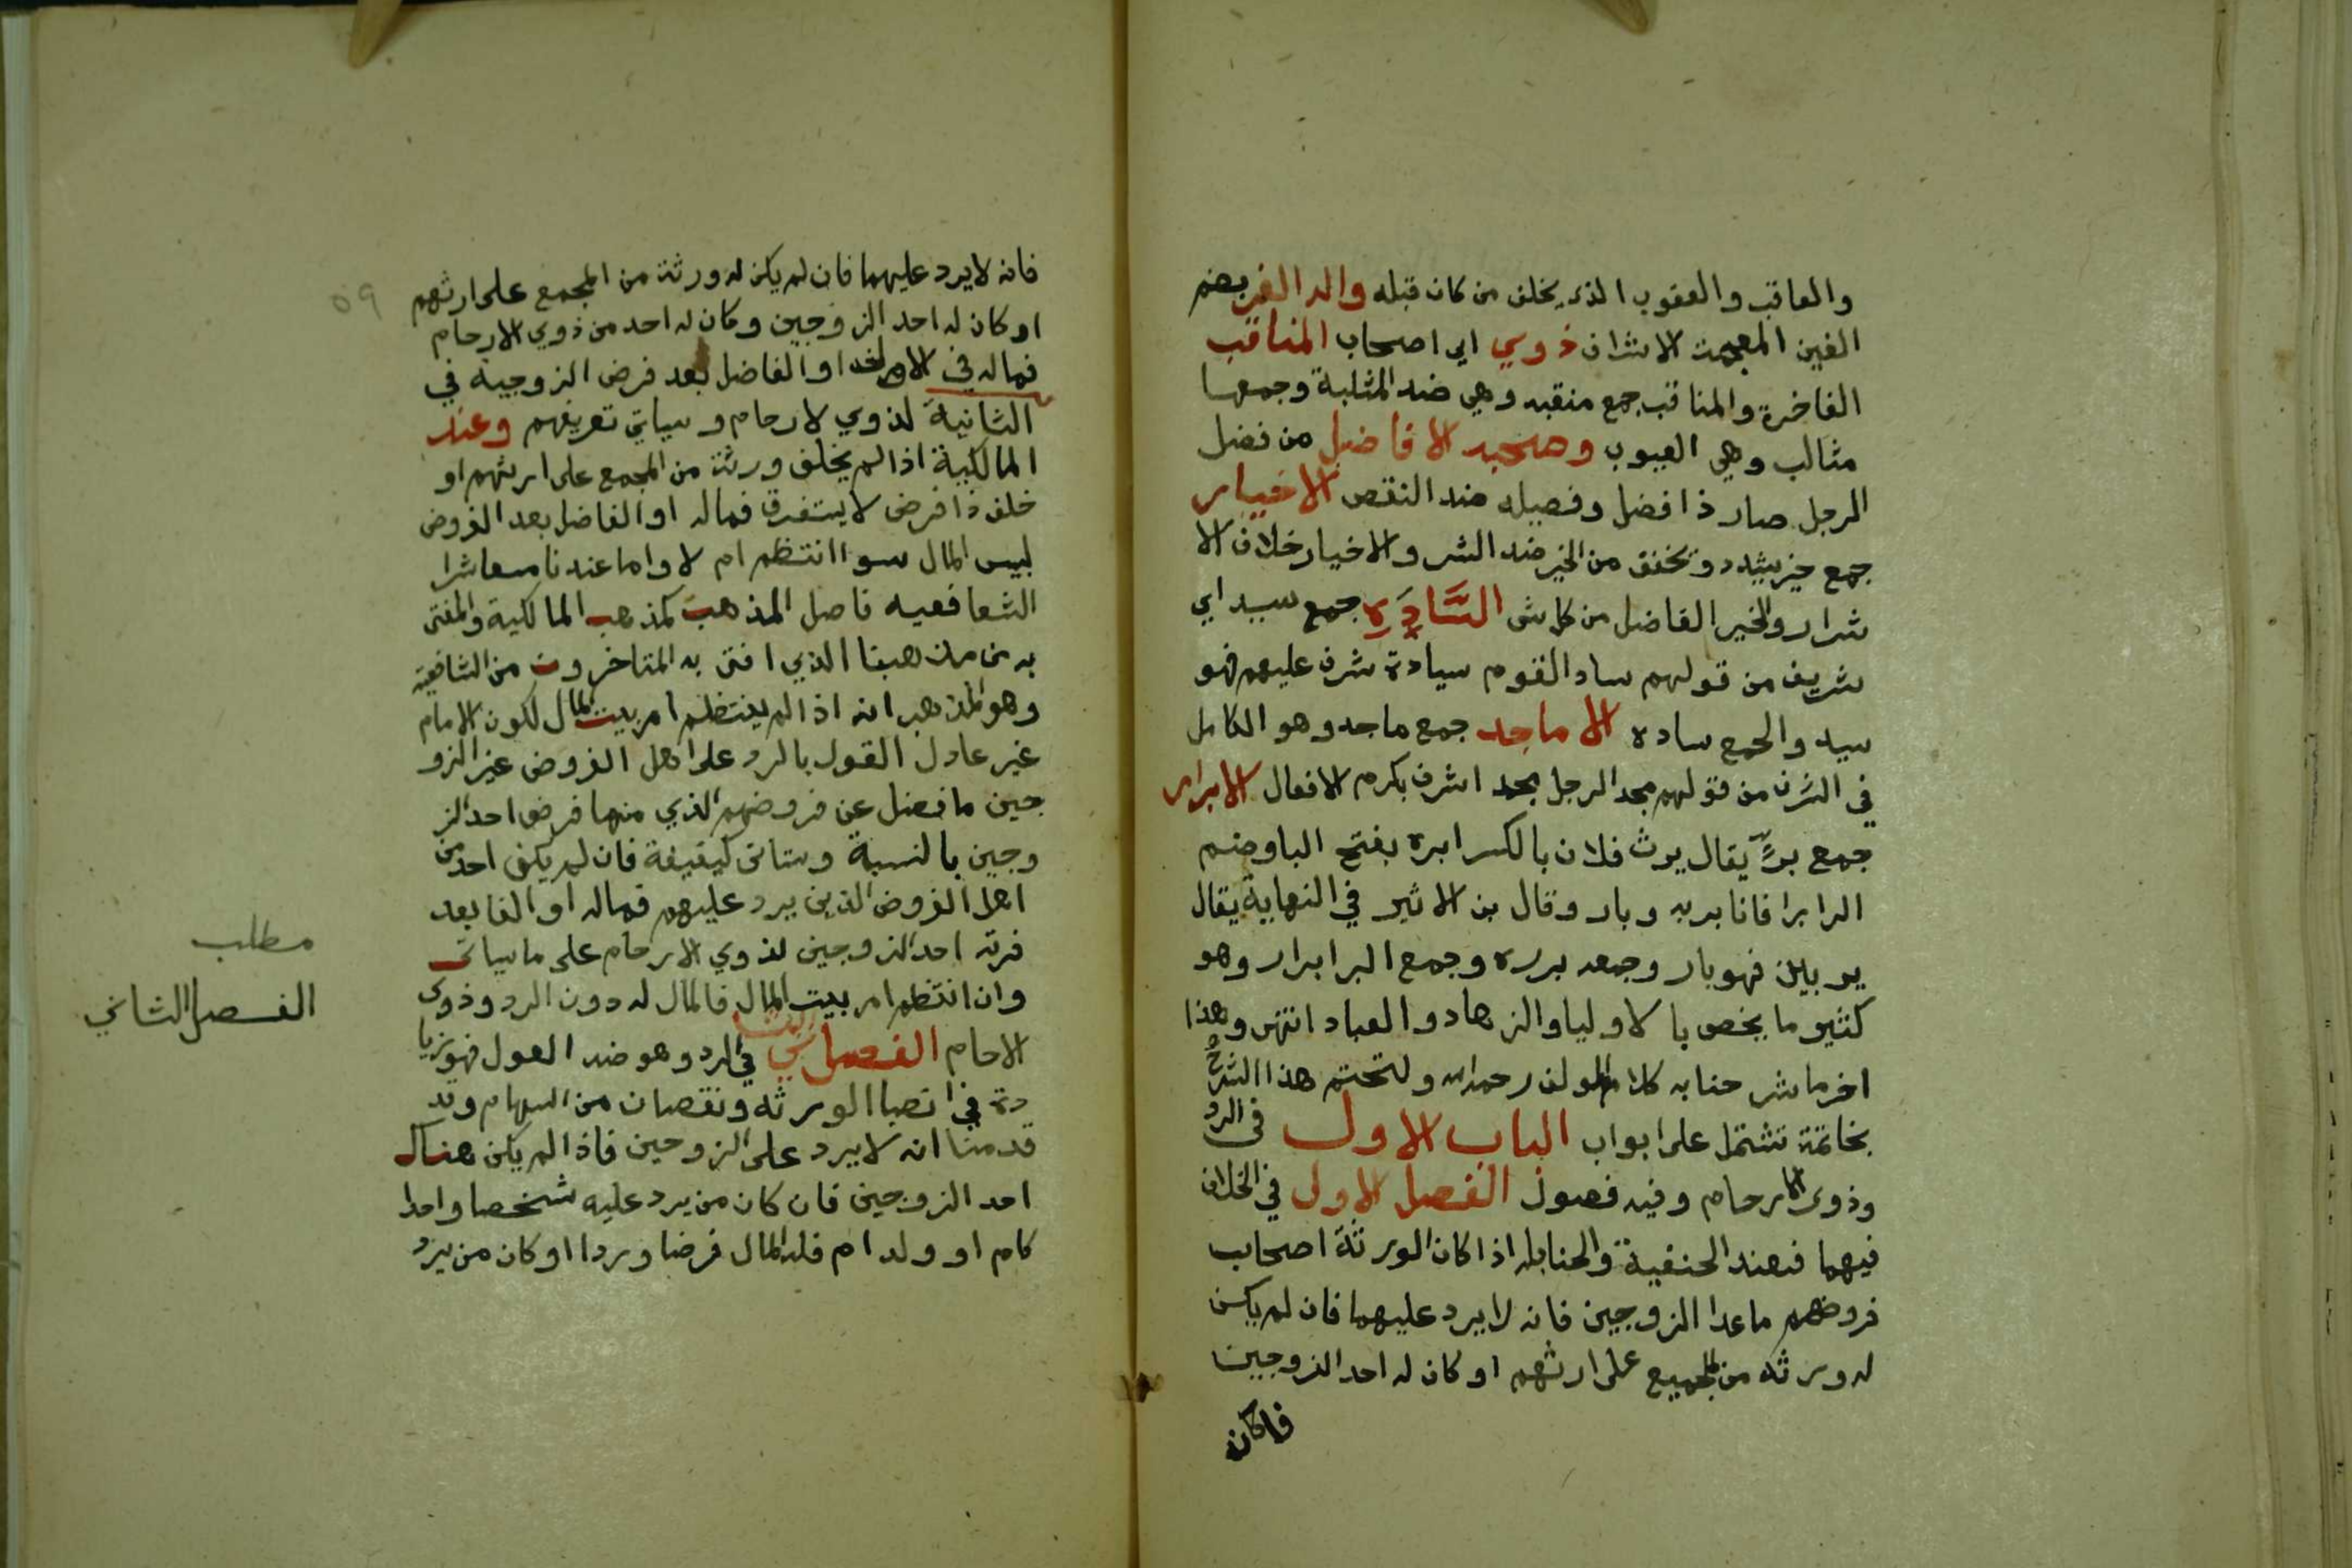 والعاقب والعقوب الذي يخلف من كان قبله واله الغر بضم
الغين المعجمة الاشراف ذوي اي اصحاب المناقب
الفاخرة والمناقب جمع منقبه وهي ضد المثلبة وجمعها
مثالب وهي العيوب وصحبه الافاضل من فضل
الرجل صار ذا فضل وفصيله ضد النقص الاخيار
جمع خير يشدد وتخفف من الخير ضد الشر والاخيار خلاف الا
شرار والخير الفاضل من كل شى السَّادَةِ جمع سيد اي
شريف من قولهم ساد القوم سيادة شرف عليهم فهو
سيد والجمع ساده الاماجد جمع ماجد وهو الكامل
في الشرف من قولهم مجد الرجل بمجد اشرف بكرم الافعال الابرار
جمع برٍّ يقال برث فلان بالكسر ابره بفتح الباوضم
الرا برا فانا بر به وبار وقال بن الاثير في النهاية يقال
بر يبر فهو بار وجمعه برره وجمع البر ابرار وهو
كثير ما يخص بالاوليا والزهاد والعباد انتهى وهذا
اخر ما شرحنا به كلام المولف رحمه الله ولنختم هذا الشرح
بخاتمة تشتمل على ابواب الباب الاول في الرد
وذوي الارحام وفيه فصول الفصل الاول في الخلاف
فيهما فعند الحنفية والحنابله اذا كان الورثة اصحاب
فروضهم ماعدا الزوجين فانه لا يرد عليهما فان لم يكن
له ورثه من المجميع على ارثهم او كان له احد الزوجين
فاكان
٥٩
فانه لا يرد عليهما فان لم يكن له ورثة من المجمع على ارثهم
او كان له احد الزوجين وكان له احد من ذوي الارحام
فماله في الاولى او الفاضل بعد فرض الزوجية في
الثانية لذوي لارحام وسياتي تعريفهم وعند
المالكية اذا لم يخلف ورثة من المجمع على ارثهم او
خلف ذا فرض لا يستغرق فماله او الفاضل بعد الفروض
لبيس المال سوا انتظم ام لا واما عندنا معاشرا
الشعافعيه فاصل المذهب كمذهب المالكية والمفتى
به من مذهبنا الذي افتى به المتاخرون من الشافعية
وهو المذهب انه اذا لم ينتظم امر بيت المال لكون الامام
غير عادل القول بالرد على اهل الفروض غير الزو
جين ما فضل عن فروضهم الذي منها فرض احد الز
وجين بالنسبة وستاتى كيفيفة فان لم يكن احد من
اهل الفروض الذين يرد عليهم فماله او الفا بعد
فرته احد الزوجين لذوي الارحام على ما سياتى
وان انتظم امر بيت المال فالمال له دون الرد وذوى
الاحام الفصل الثاني في الرد وهو ضد العول فهو زيا
دة في انصبا الورثه ونقصان من السهام وقد
قدمنا انه لا يرد على الزوجين فاذا لم يكن هناك
احد الزوجين فان كان من يرد عليه شخصا واحدا
كام او ولد ام فله المال فرضا وردا او كان من يرد
مطلب
الفصل الثاني